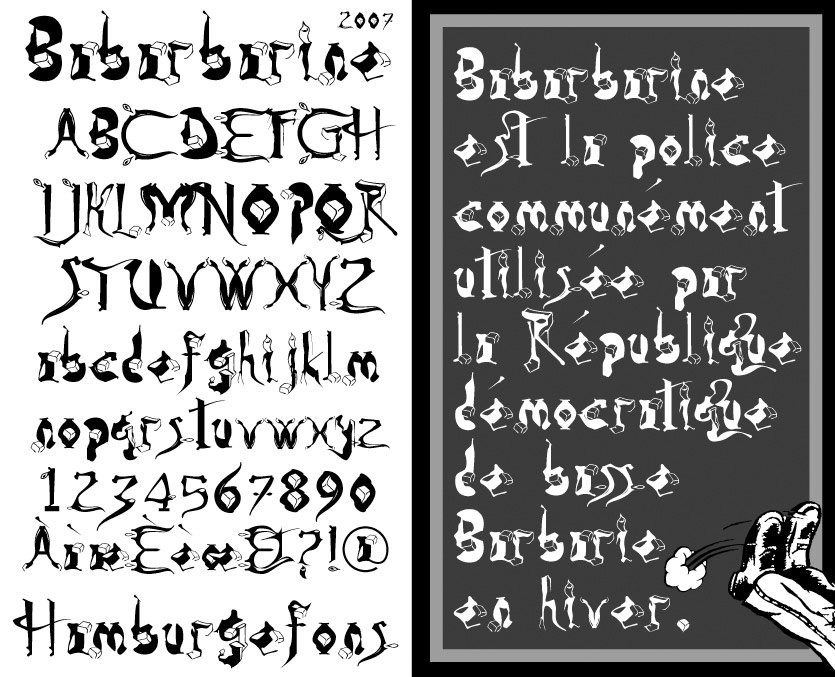 2007
Babarbarine
ABCDEFGH
IJKLMNOPQR
STUVWXYZ
abcdefghijklm
nopqrstuvwxyz
1234567890
?!@
Hamburgefons
Babarbarine
est la police
communément
utilisée par
la République
démocratique
de basse
Barbarie
en hiver.